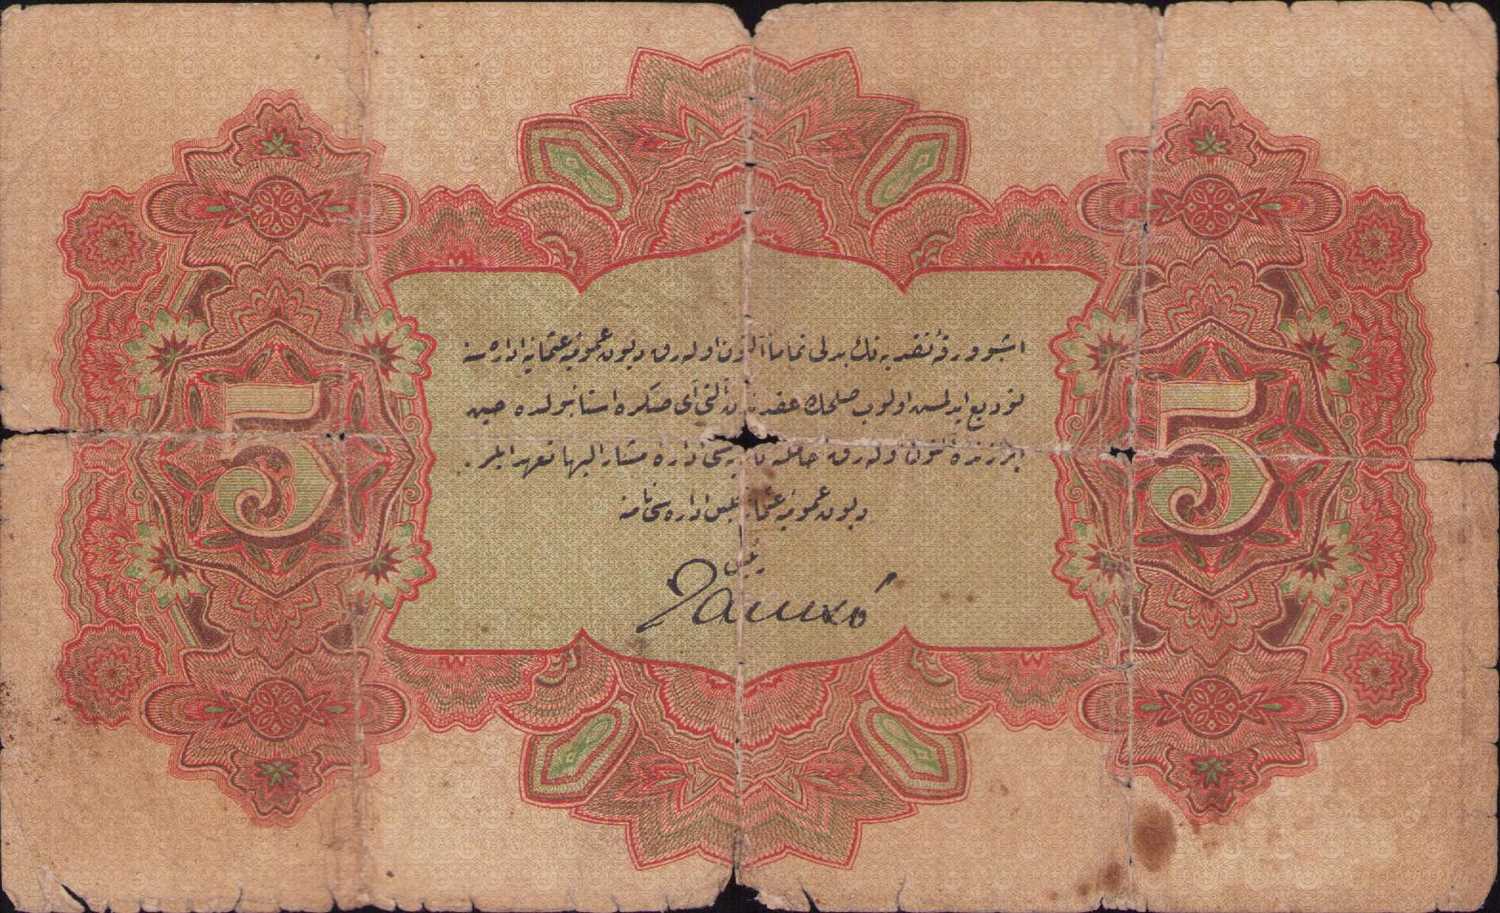 5
5
اشبو ورقهٔ نقدیه نك بدلی تماماً آلتون اوله رق دیون عمومیهٔ عثمانیه اداره سنه
تودیع ایدلمش اولوب صلحك عقدندن آلتی آی صكره استانبولده حین
ابرازنده آلتون اوله رق حامله تأدیه سنی اداره مشار الیها تعهد ایلر .
دیون عمومیهٔ عثمانیه مجلس اداره سی نامنه
رئیس